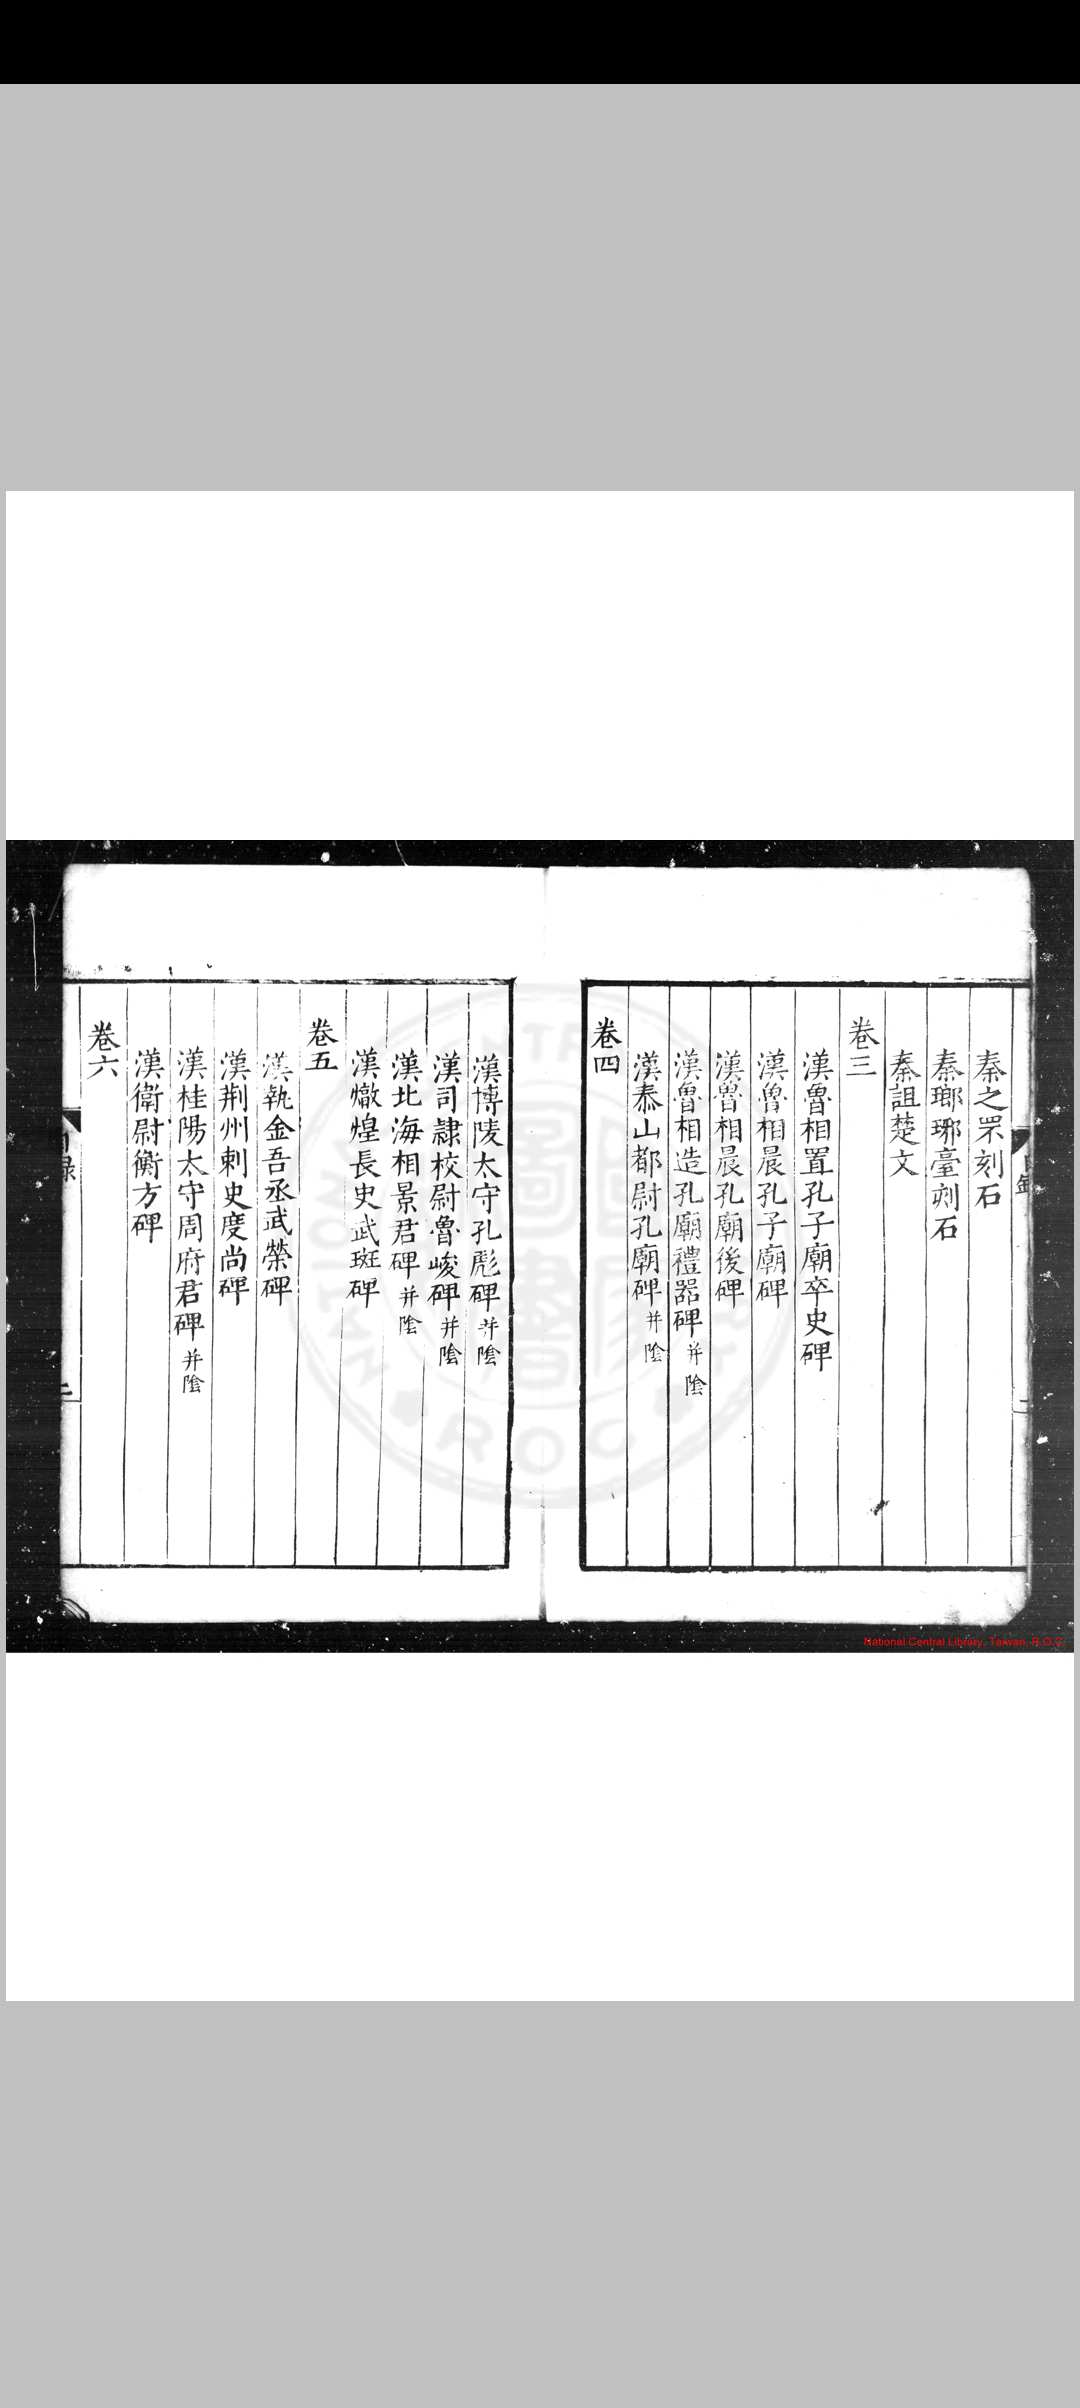 秦之罘刻石
秦瑯琊臺刻石
秦詛楚文
卷三
漢魯相置孔子廟卒史碑
漢魯相晨孔子廟碑
漢魯相晨孔廟後碑
漢魯相造孔廟禮器碑并陰
漢泰山都尉孔廟碑并陰
卷四
漢博陵太守孔彪碑并陰
漢司隷校尉魯峻碑并陰
漢北海相景君碑并陰
漢燉煌長史武斑碑
卷五
漢執金吾丞武榮碑
漢荆州刺史度尚碑
漢桂陽太守周府君碑并陰
漢衛尉衡方碑
卷六
目錄
二
National Central Library, Taiwan, R.O.C